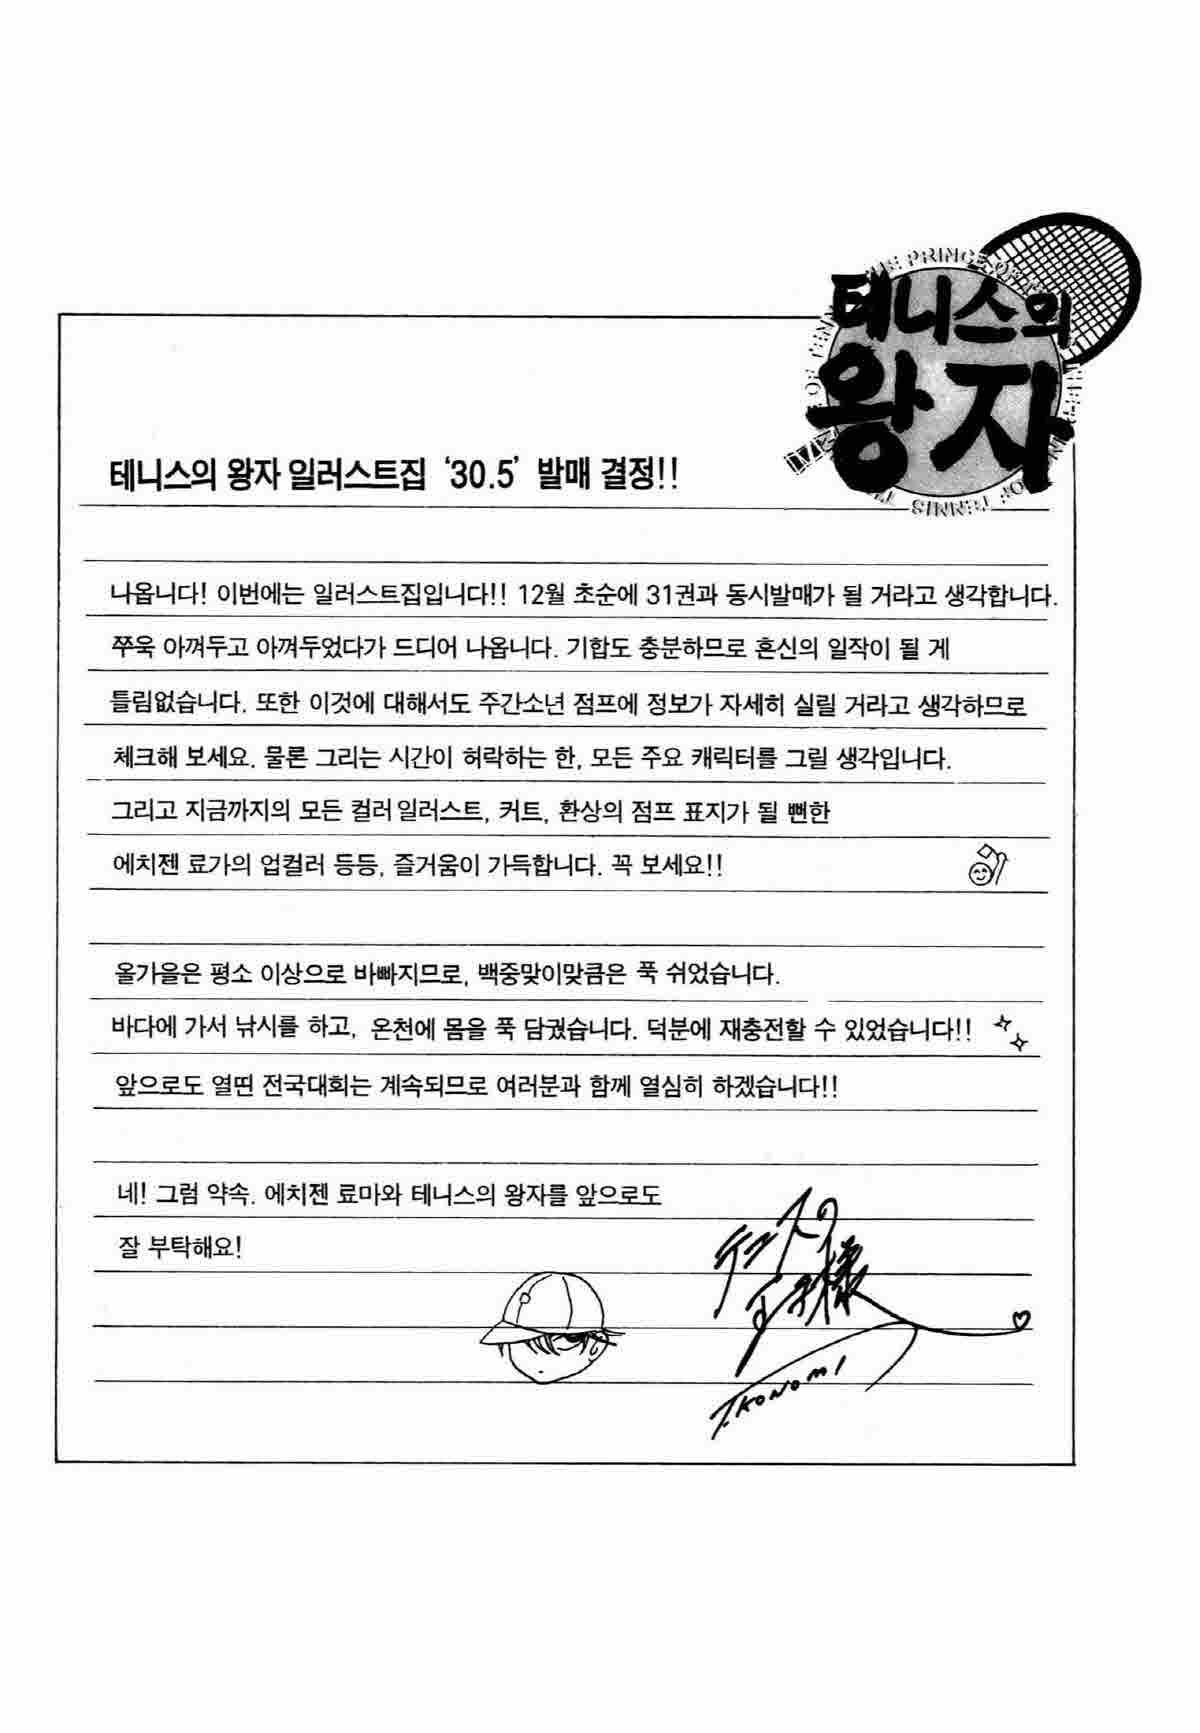 테니스의
왕자
테니스의 왕자 일러스트집 ‘30.5’ 발매 결정!!
나옵니다! 이번에는 일러스트집입니다!! 12월 초순에 31권과 동시발매가 될 거라고 생각합니다.
쭈욱 아껴두고 아껴두었다가 드디어 나옵니다. 기합도 충분하므로 혼신의 일작이 될 게
틀림없습니다. 또한 이것에 대해서도 주간소년 점프에 정보가 자세히 실릴 거라고 생각하므로
체크해 보세요. 물론 그리는 시간이 허락하는 한, 모든 주요 캐릭터를 그릴 생각입니다.
그리고 지금까지의 모든 컬러 일러스트, 커트, 환상의 점프 표지가 될 뻔한
에치젠 료가의 업컬러 등등, 즐거움이 가득합니다. 꼭 보세요!!
올가을은 평소 이상으로 바빠지므로, 백중맞이맞큼은 푹 쉬었습니다.
바다에 가서 낚시를 하고, 온천에 몸을 푹 담궜습니다. 덕분에 재충전할 수 있었습니다!!
앞으로도 열띤 전국대회는 계속되므로 여러분과 함께 열심히 하겠습니다!!
네! 그럼 약속. 에치젠 료마와 테니스의 왕자를 앞으로도
잘 부탁해요!
テニスの
王子様
T.KONOMI